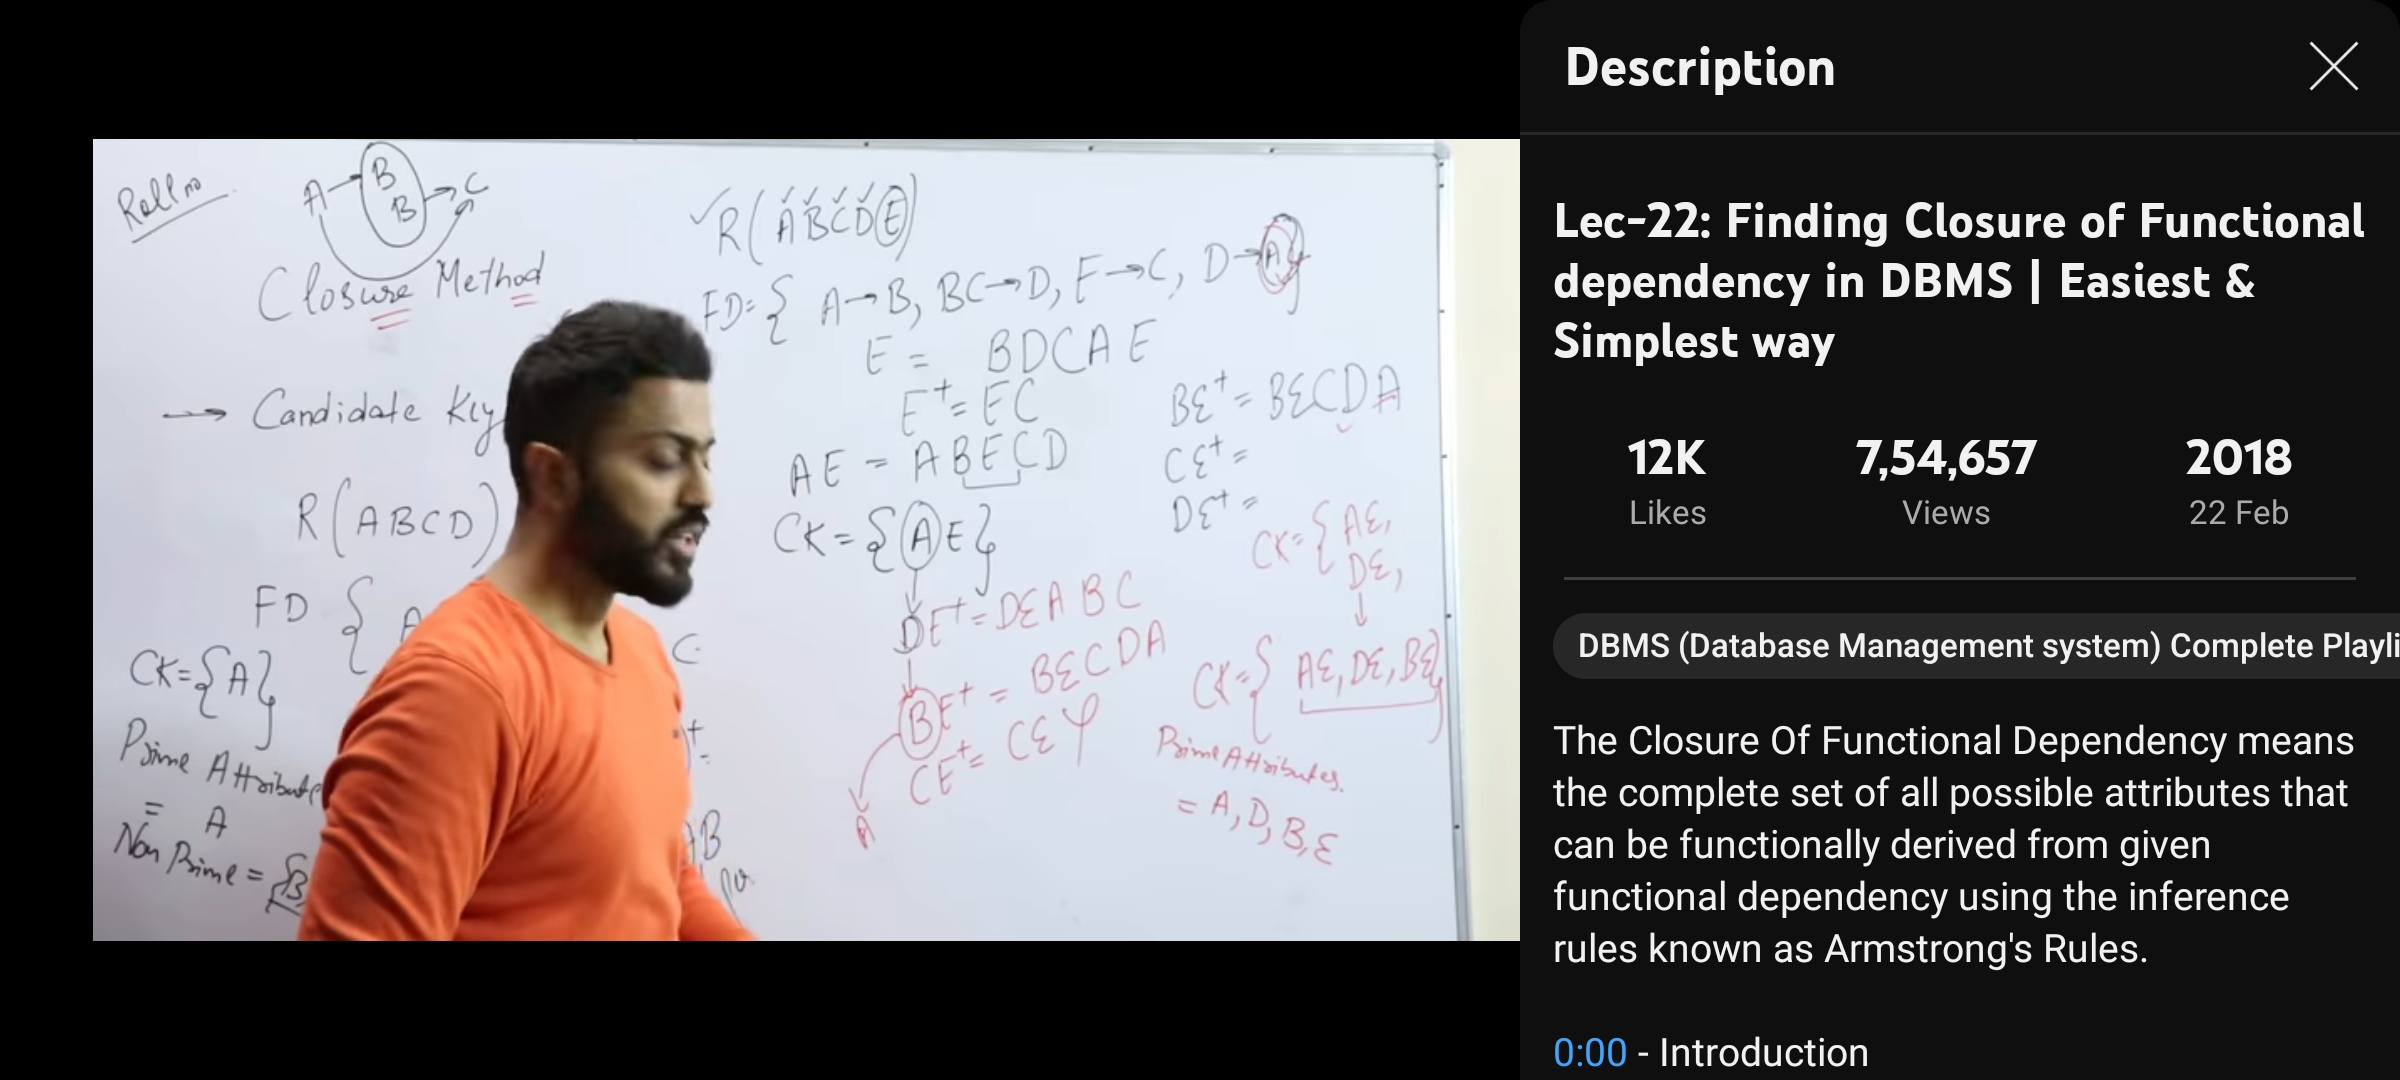 Roll no
A → B
B → C
Closure Method
→ Candidate Key
R(ABCD)
FD {
CK={A}
Prime Attribute
= A
Non Prime = {B
✓R(ABCDE)
FD={ A→B, BC→D, E→C, D→A}
E = BDCAE
E⁺= EC
AE = ABECD
CK={AE}
DE⁺= DEABC
BE⁺= BECDA
CE⁺= CE
A
BE⁺= BECDA
CE⁺=
DE⁺=
CK={AE,
DE,
CK={AE, DE, BE}
Prime Attributes.
= A, D, B, E
C
AB
Description
Lec-22: Finding Closure of Functional
dependency in DBMS | Easiest &
Simplest way
12K 7,54,657 2018
Likes Views 22 Feb
DBMS (Database Management system) Complete Playli
The Closure Of Functional Dependency means
the complete set of all possible attributes that
can be functionally derived from given
functional dependency using the inference
rules known as Armstrong's Rules.
0:00 - Introduction